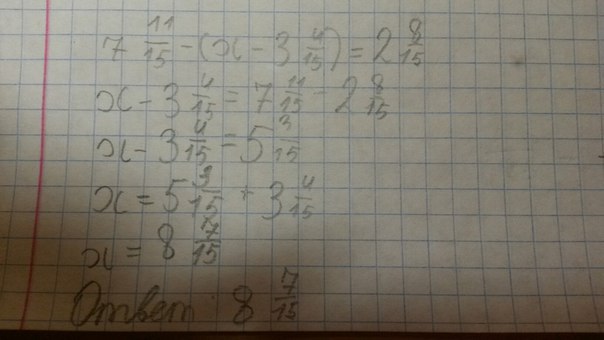 7 11/15 - (x - 3 4/15) = 2 8/15
x - 3 4/15 = 7 11/15 - 2 8/15
x - 3 4/15 = 5 3/15
x = 5 3/15 + 3 4/15
x = 8 7/15
Ответ 8 7/15